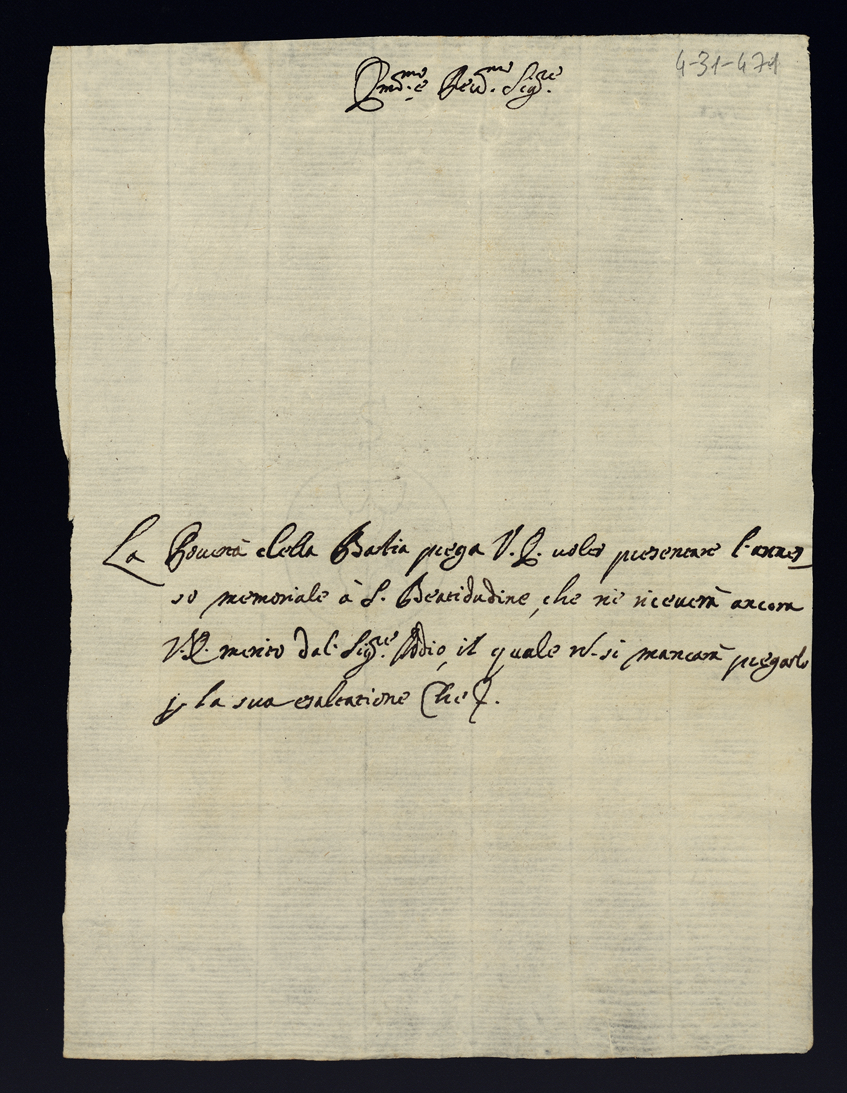 4-31-471
Rmo. e Reud.mo Sig.re
La Pouertà della Bastia prega V. S. uoler presentare l'annes,
so memoriale à S. Beatidudine, che ne riceuerà ancora
V.S. merito dal Sig.re Iddio, il quale nō si mancarà pregarlo
p la sua esaltatione Che